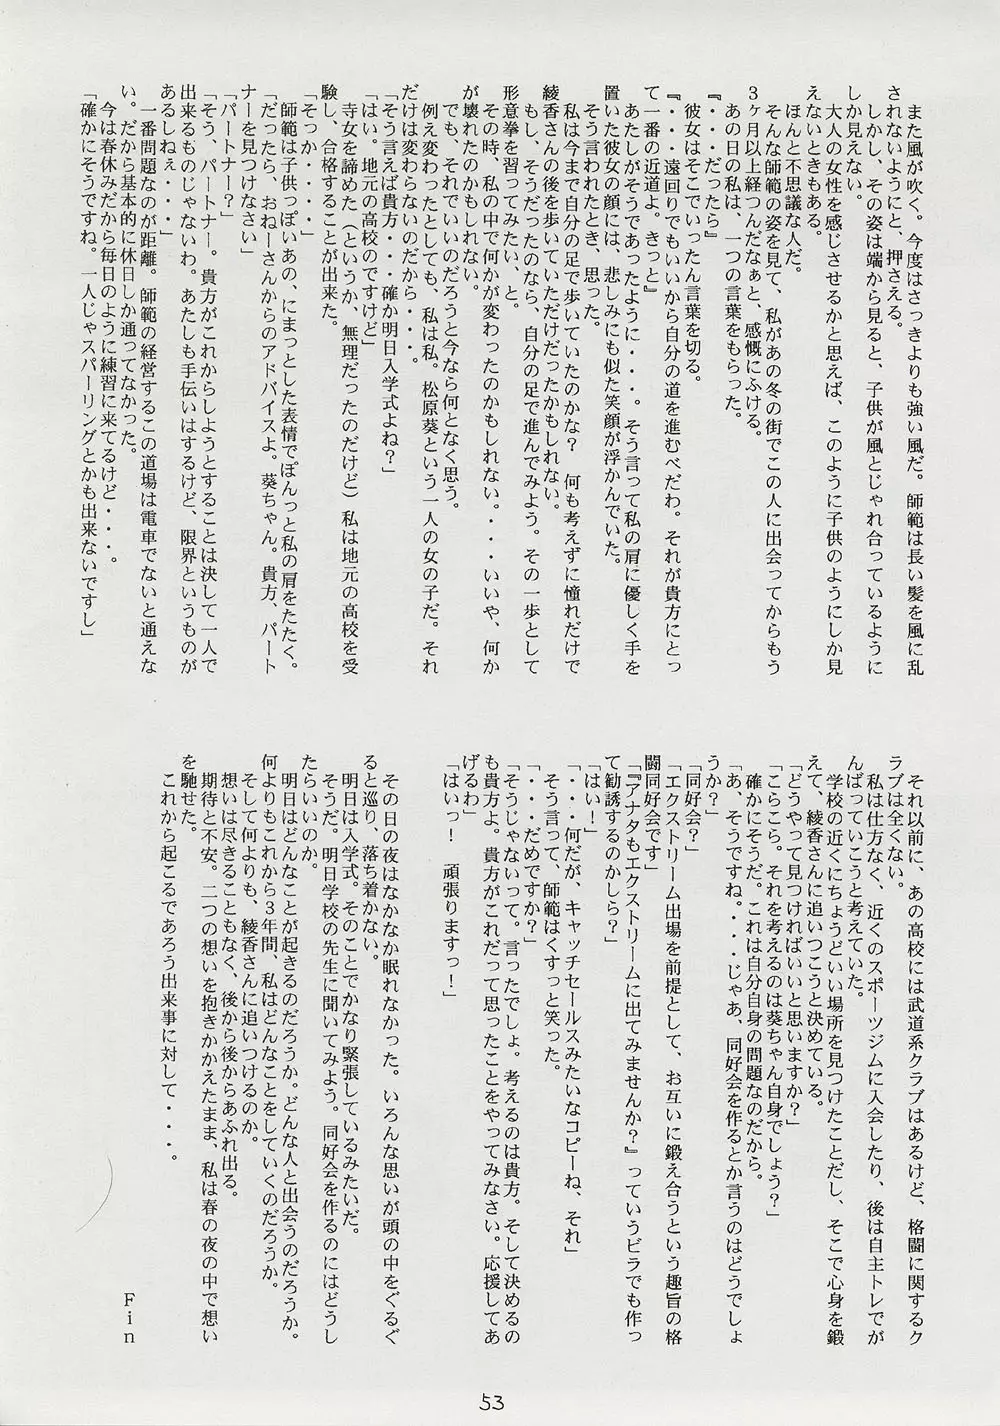 また風が吹く。今度はさっきよりも強い風だ。師範は長い髪を風に乱
されないようにと、押さえる。
しかし、その姿は端から見ると、子供が風とじゃれ合っているように
しか見えない。
大人の女性を感じさせるかと思えば、このように子供のようにしか見
えないときもある。
ほんと不思議な人だ。
そんな師範の姿を見て、私があの冬の街でこの人に出会ってからもう
3ヶ月以上経つんだなぁと、感慨にふける。
あの日の私は、一つの言葉をもらった。
『・・・だったら』
彼女はそこでいったん言葉を切る。
『・・・遠回りでもいいから自分の道を進むべだわ。それが貴方にとっ
て一番の近道よ。きっと』
あたしがそうであったように・・・。そう言って私の肩に優しく手を
置いた彼女の顔には、悲しみにも似た笑顔が浮かんでいた。
そう言われたとき、思った。
私は今まで自分の足で歩いていたのかな？　何も考えずに憧れだけで
綾香さんの後を歩いていただけだったかもしれない。
もし、そうだったのなら、自分の足で進んでみよう。その一歩として
形意拳を習ってみたい、と。
その時、私の中で何かが変わったのかもしれない。・・・いいや、何か
が壊れたのかもしれない。
でも、それでいいのだろうと今なら何となく思う。
例え変わったとしても、私は私。松原葵という一人の女の子だ。それ
だけは変わらないのだから・・・。
「そう言えば貴方・・・確か明日入学式よね？」
「はい。地元の高校のですけど」
寺女を諦めた（というか、無理だったのだけど）私は地元の高校を受
験し、合格することが出来た。
「そっか・・・」
師範は子供っぽいあの、にまっとした表情でぽんっと私の肩をたたく。
「だったら、おねーさんからのアドバイスよ、葵ちゃん。貴方、パート
ナーを見つけなさい」
「パートナー？」
「そう、パートナー。貴方がこれからしようとすることは決して一人で
出来るものじゃないわ。あたしも手伝いはするけど、限界というものが
あるしねぇ・・・」
一番問題なのが距離。師範の経営するこの道場は電車でないと通えな
い。だから基本的に休日しか通ってなかった。
今は春休みだから毎日のように練習に来てるけど・・・。
「確かにそうですね。一人じゃスパーリングとかも出来ないですし」
それ以前に、あの高校には武道系クラブはあるけど、格闘に関するク
ラブは全くない。
私は仕方なく、近くのスポーツジムに入会したり、後は自主トレでが
んばっていこうと考えていた。
学校の近くにちょうどいい場所を見つけたことだし、そこで心身を鍛
えて、綾香さんに追いつこうと決めている。
「どうやって見つければいいと思いますか？」
「こらこら。それを考えるのは葵ちゃん自身でしょう？」
確かにそうだ。これは自分自身の問題なのだから。
「あ、そうですね。・・・じゃあ、同好会を作るとか言うのはどうでしょ
うか？」
「同好会？」
「エクストリーム出場を前提として、お互いに鍛え合うという趣旨の格
闘同好会です」
「『アナタもエクストリームに出てみませんか？』っていうビラでも作っ
て勧誘するのかしら？」
「はい！」
「・・・何だが、キャッチセールスみたいなコピーね、それ」
そう言って、師範はくすっと笑った。
「・・・だめですか？」
「そうじゃないって。言ったでしょ。考えるのは貴方。そして決めるの
も貴方よ。貴方がこれだって思ったことをやってみなさい。応援してあ
げるわ」
「はいっ！　頑張りますっ！」
その日の夜はなかなか眠れなかった。いろんな思いが頭の中をぐるぐ
ると巡り、落ち着かない。
明日は入学式。そのことでかなり緊張しているみたいだ。
そうだ。明日学校の先生に聞いてみよう。同好会を作るのにはどうし
たらいいのか。
明日はどんなことが起きるのだろうか。どんな人と出会うのだろうか。
何よりもこれから3年間、私はどんなことをしていくのだろうか。
そして何よりも、綾香さんに追いつけるのか。
想いは尽きることもなく、後から後からあふれ出る。
期待と不安。二つの想いを抱きかかえたまま、私は春の夜の中で想い
を馳せた。
これから起こるであろう出来事に対して・・・。
Fin
53